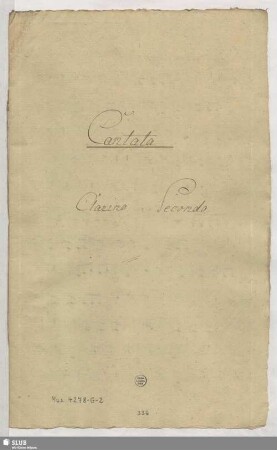 Cantata
Clarino Secondo
Mus. 4278-G-2
SLUB